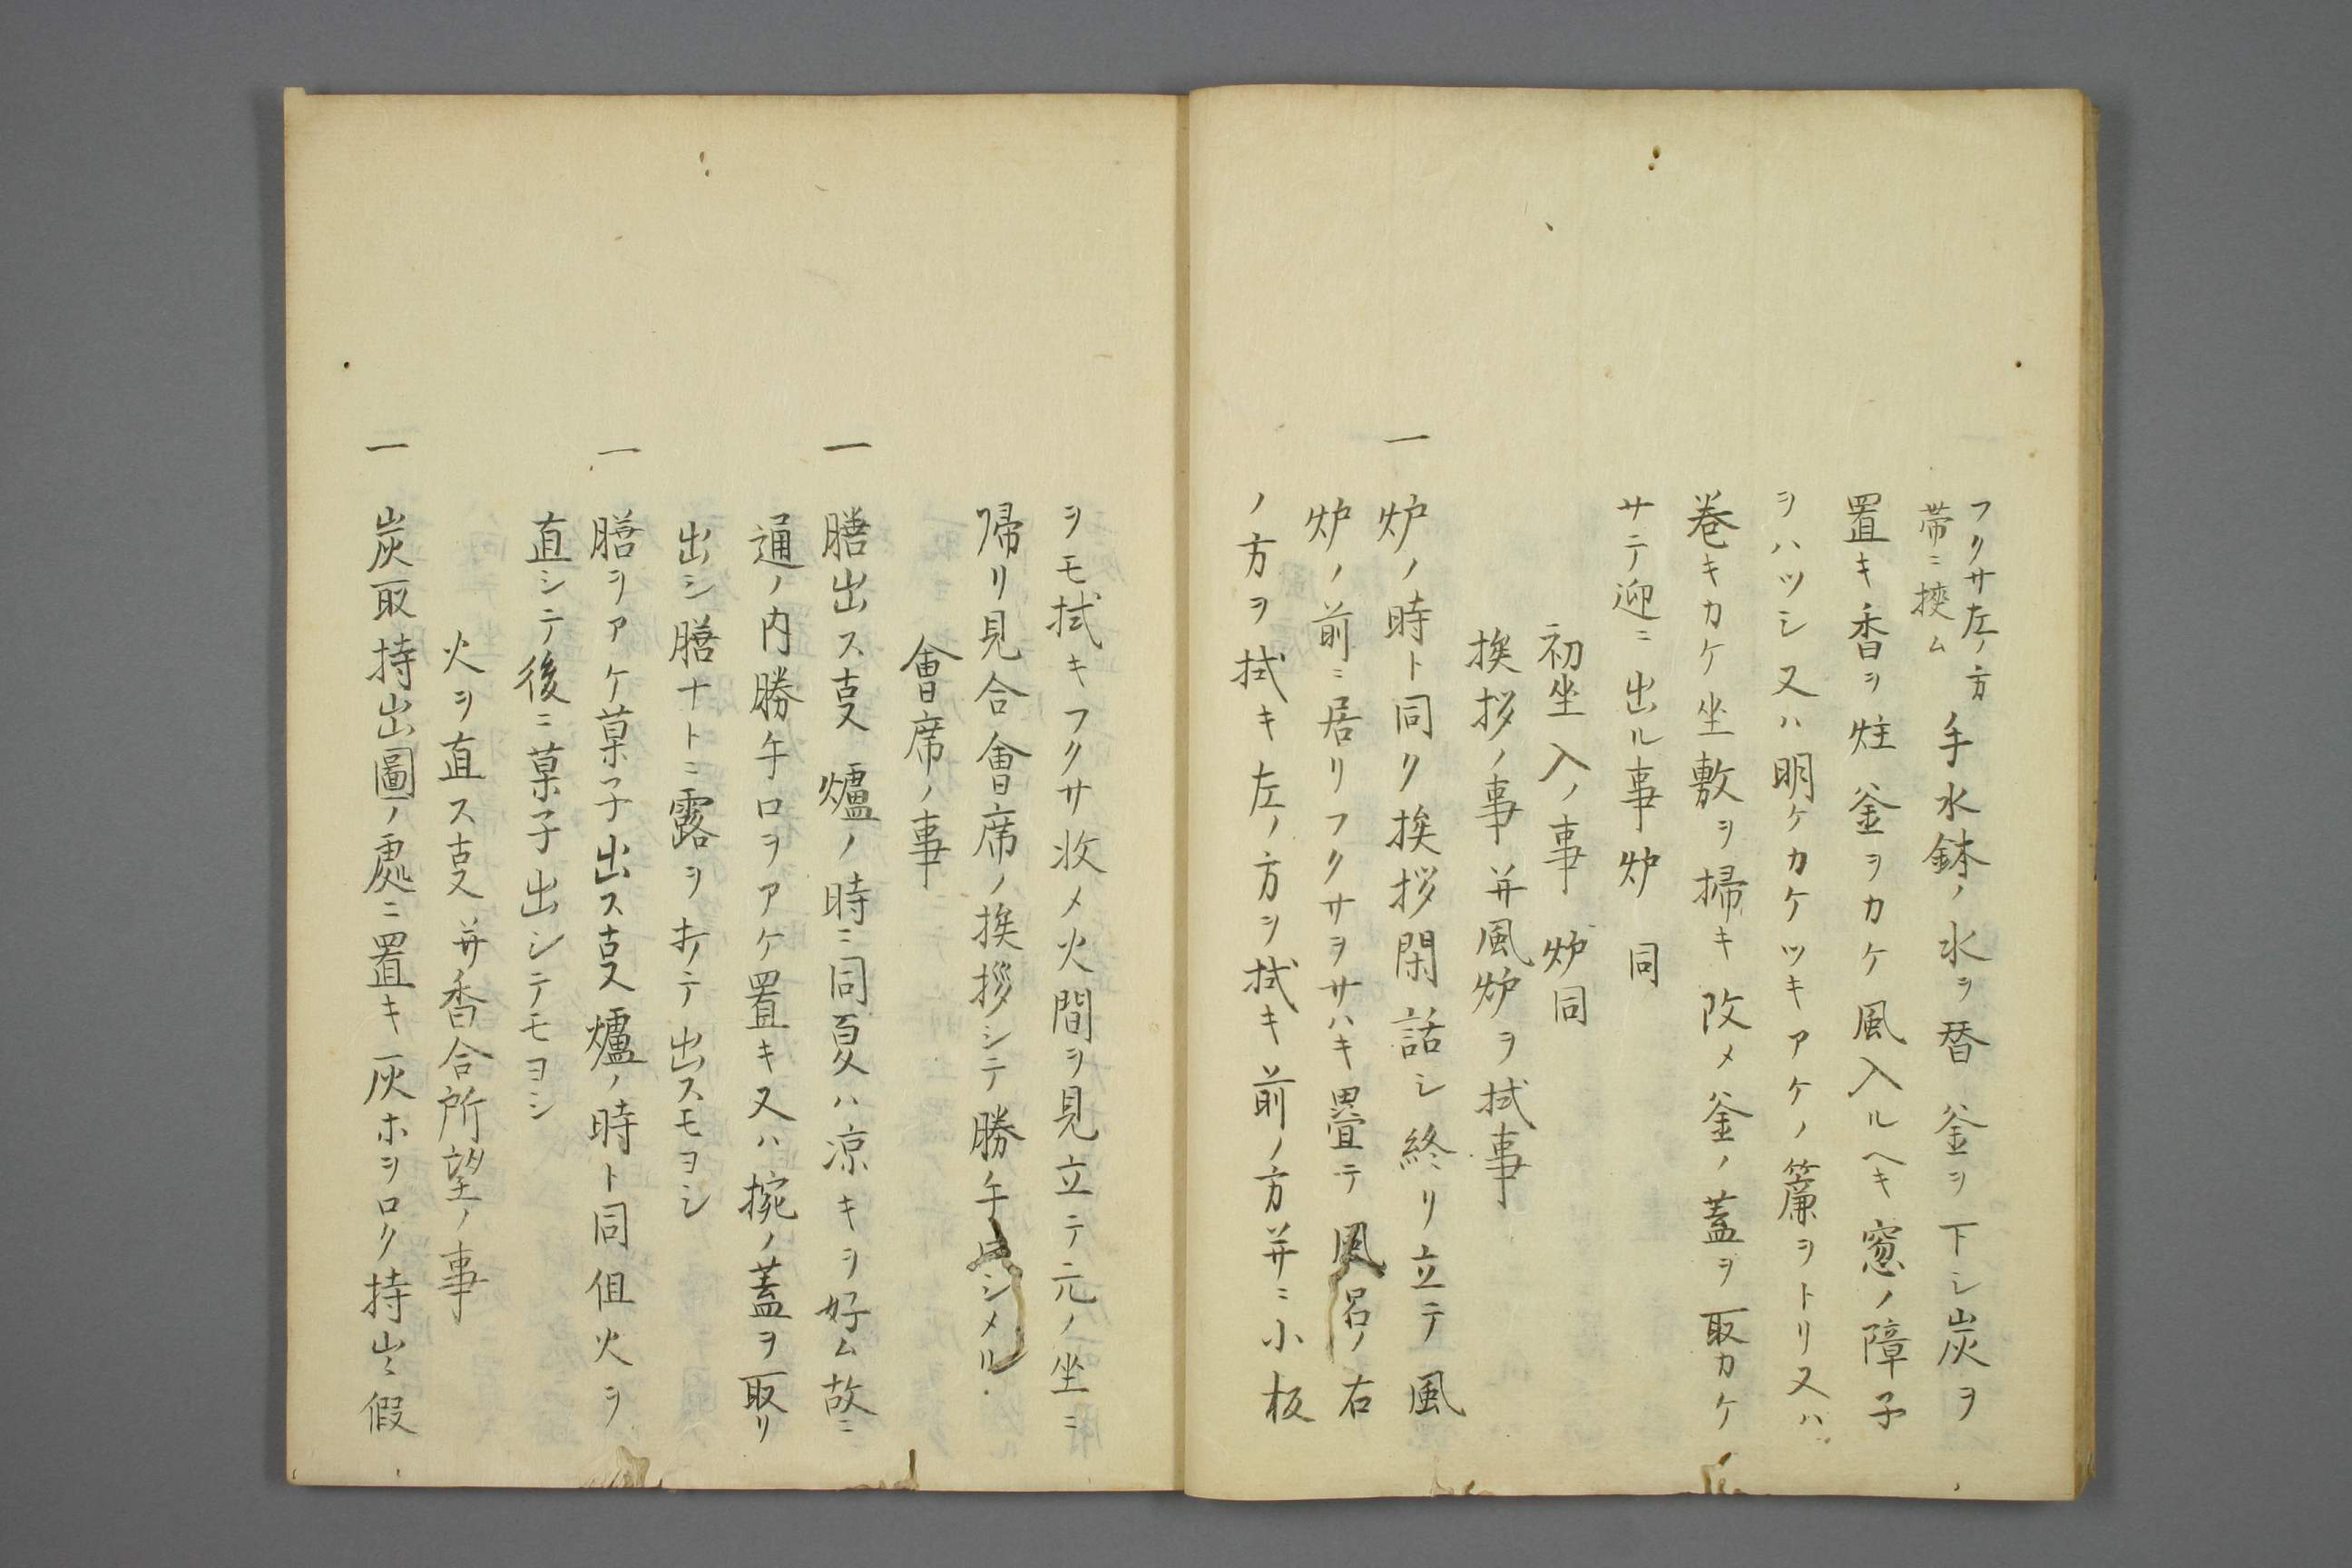 フクサ左ノ方
帯ニ挾ム
手水鉢ノ水ヲ替 釜ヲ下シ炭ヲ
置キ香ヲ炷 釜ヲカケ風入ルヘキ窓ノ障子
ヲハツシ又ハ明ケカケツキアケノ簾ヲトリ又ハ
巻キカケ坐敷ヲ掃キ改メ釜ノ蓋ヲ取カケ
サテ迎ニ出ル事炉 同
初坐入ノ事 炉同
挨拶ノ事 并風炉ヲ拭事
一 炉ノ時ト同ク挨拶閑話シ終リ立テ風
炉ノ前ニ居リフクサヲサハキ疊テ風呂ノ右
ノ方ヲ拭キ左ノ方ヲ拭キ前ノ方并ニ小板
ヲモ拭キフクサ收メ火間ヲ見立テ元ノ坐ニ
帰リ見合會席ノ挨拶シテ勝手シメル
會席ノ事
一 膳出ス叓 爐ノ時ニ同夏ハ凉キヲ好ム故ニ
通ノ内勝手口ヲアケ置キ又ハ捥ノ蓋ヲ取リ
出シ膳ナトニ露ヲ打テ出スモヨシ
一 膳ヲアケ菓子出ス叓爐ノ時ト同伹火ヲ
直シテ後ニ菓子出シテモヨシ
火ヲ直ス叓 并香合所望ノ事
一 炭取持出圖ノ處ニ置キ灰ホヲロク持出假